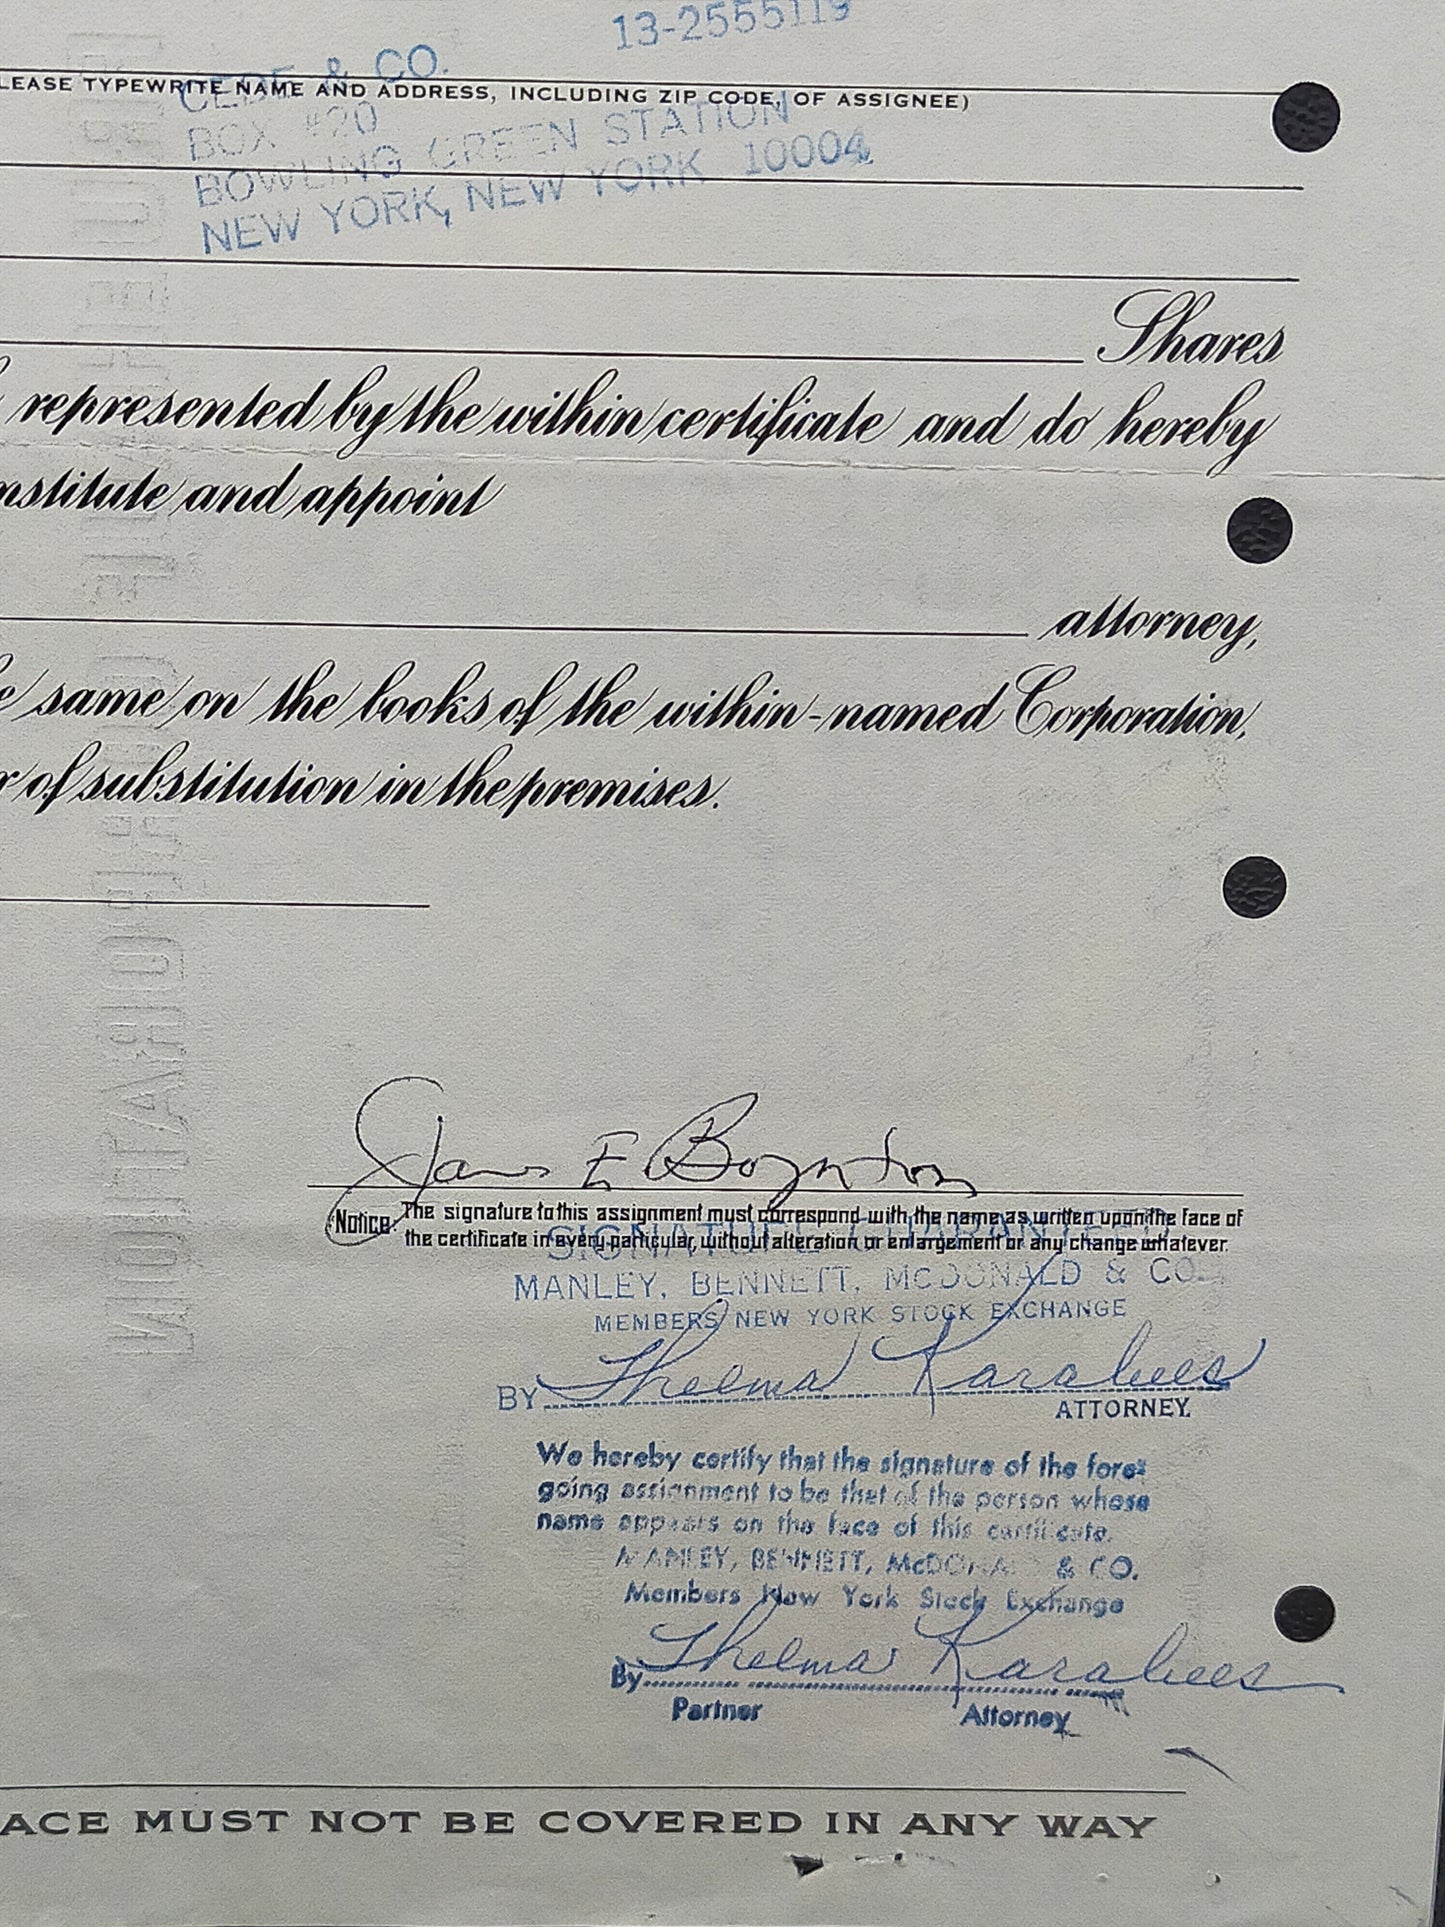 13-2555119
CEDE & CO.
LEASE TYPEWRITE NAME AND ADDRESS, INCLUDING ZIP CODE, OF ASSIGNEE)
BOX #20
BOWLING GREEN STATION
NEW YORK, NEW YORK 10004
Shares
represented by the within certificate and do hereby
nstitute and appoint
attorney,
e same on the books of the within-named Corporation,
r of substitution in the premises.
James E Boynton
Notice: The signature to this assignment must correspond with the name as written upon the face of
the certificate in every particular, without alteration or enlargement or any change whatever.
SIGNATURE GUARANTEED
MANLEY, BENNETT, MCDONALD & CO.
MEMBERS NEW YORK STOCK EXCHANGE
BY Thelma Karabees
ATTORNEY
We hereby certify that the signature of the fore-
going assignment to be that of the person whose
name appears on the face of this certificate.
MANLEY, BENNETT, McDONALD & CO.
Members New York Stock Exchange
By Thelma Karabees
Partner Attorney
ACE MUST NOT BE COVERED IN ANY WAY